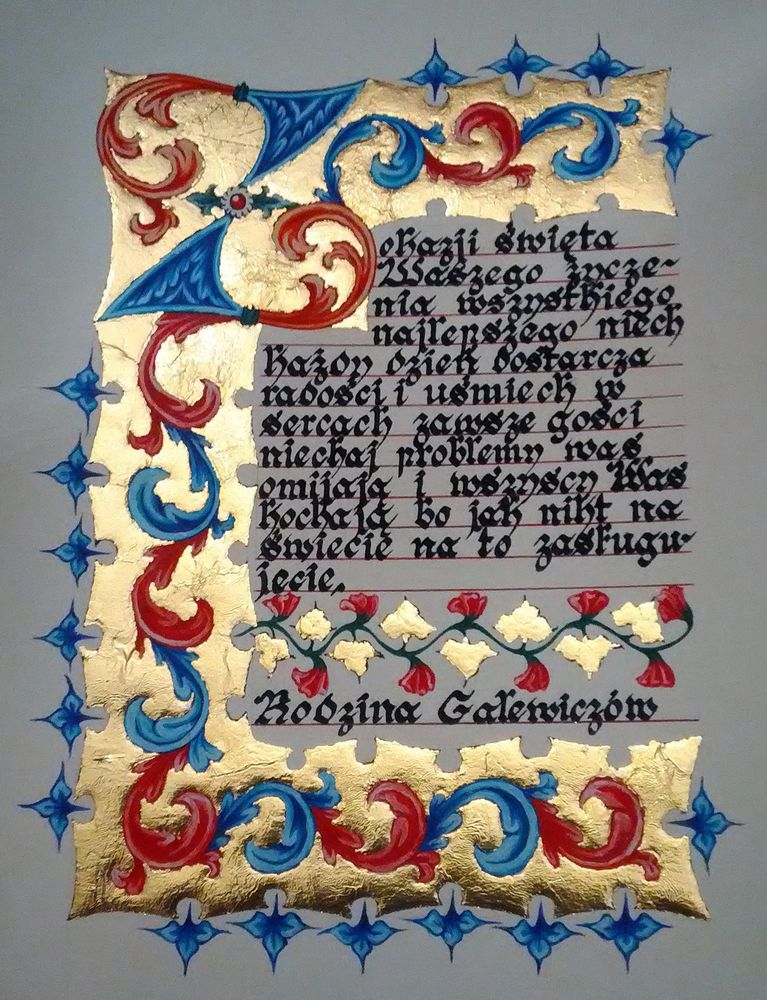 Z okazji święta
Waszego życze-
nia wszystkiego
najlepszego niech
każdy dzień dostarcza
radości i uśmiech w
sercach zawsze gości
niechaj problemy was
omijają i wszyscy Was
kochają bo jak nikt na
świecie na to zasługu-
jecie.
Rodzina Galewiczów